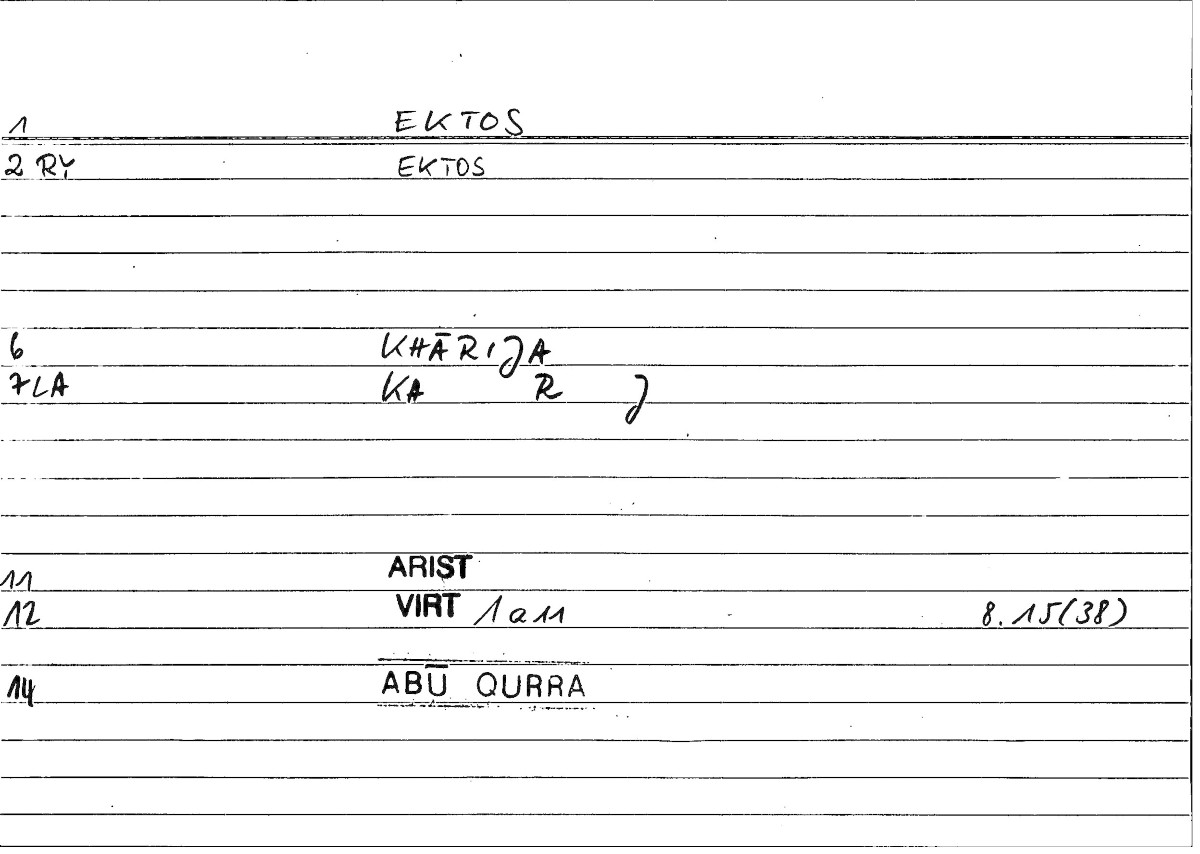 1 EKTOS
2 RY EKTOS
6 KHĀRIJA
7LA KA R J
11 ARIST
12 VIRT 1a11 8.15(38)
14 ABŪ QURRA